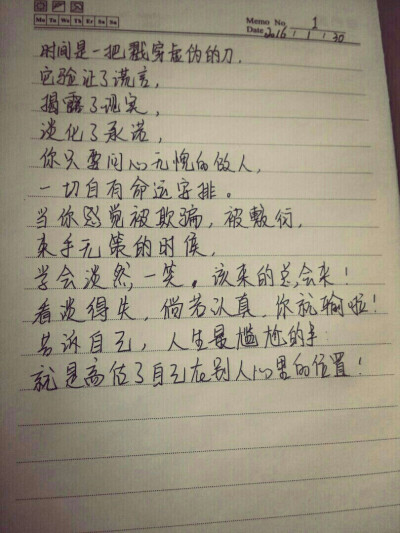 Mo Tu We Th Fr Sa Su
Memo No. 1
Date 2016 / 1 / 30
时间是一把戳穿虚伪的刀，
它验证了谎言，
揭露了现实，
淡化了承诺，
你只要问心无愧的做人，
一切自有命运安排。
当你感觉被欺骗，被敷衍，
束手无策的时候，
学会淡然一笑。该来的总会来！
看淡得失，倘若认真，你就输啦！
告诉自己，人生最尴尬的事
就是高估了自己在别人心里的位置！